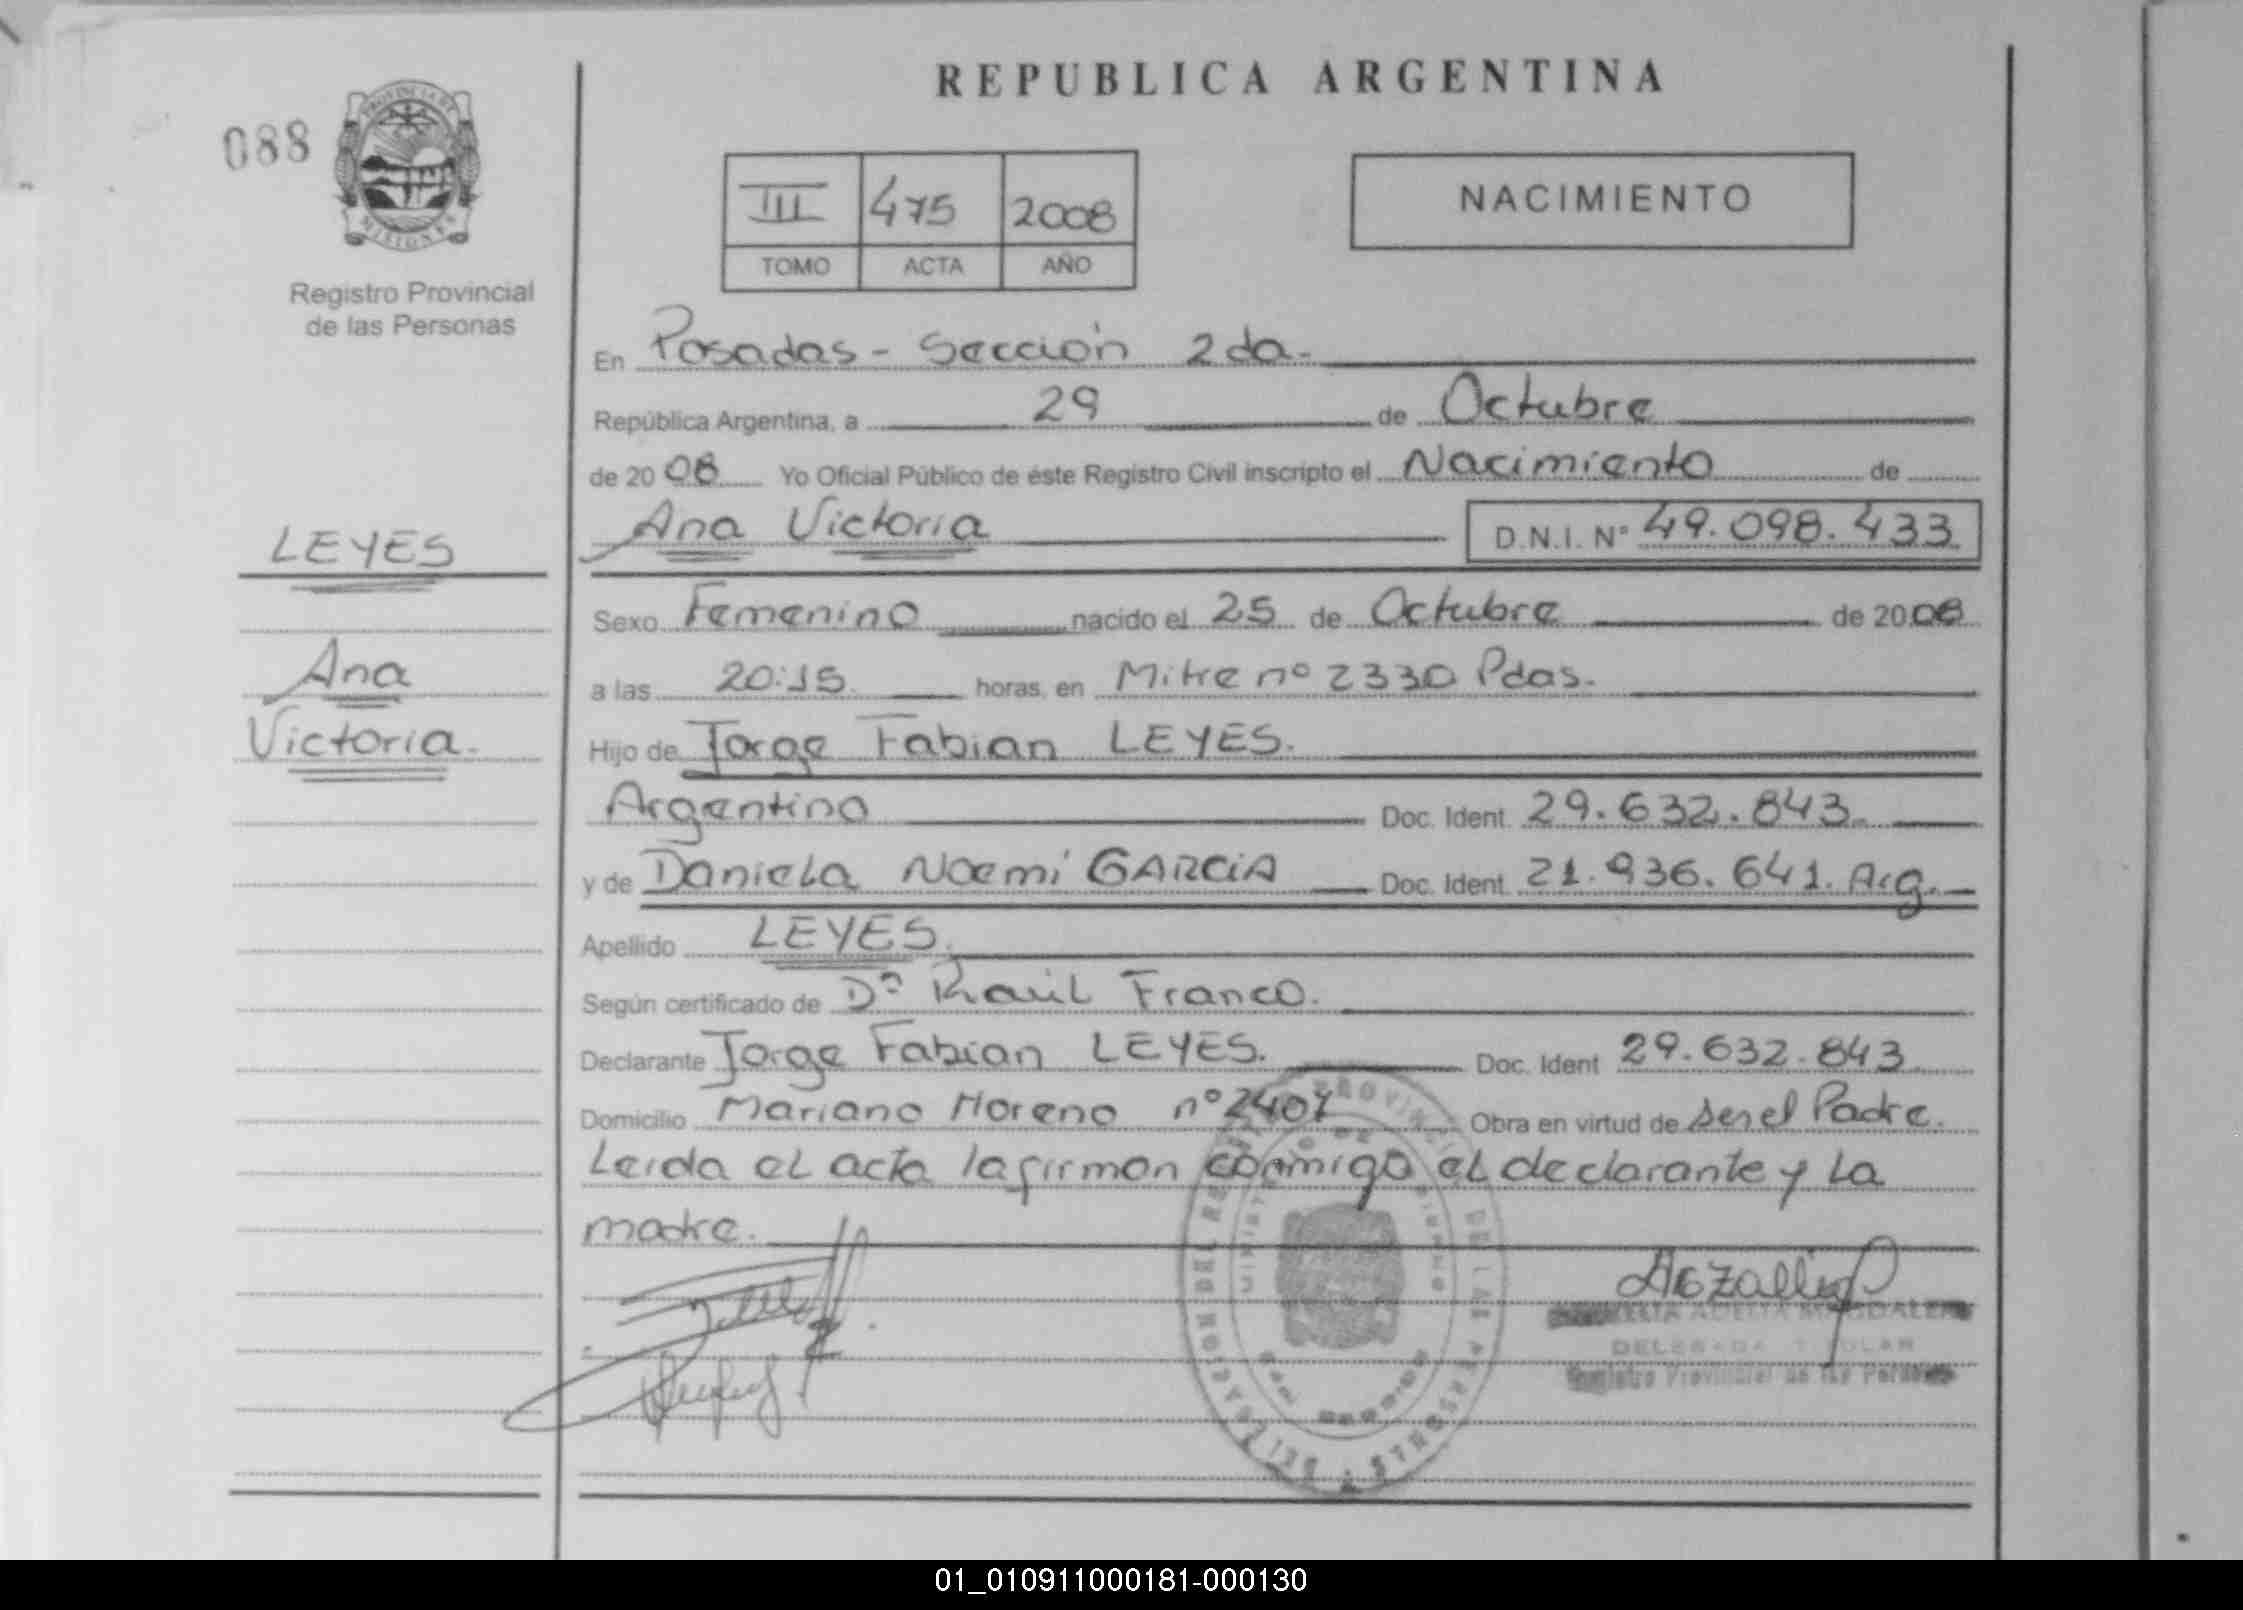 REPUBLICA ARGENTINA
088
PROVINCIA DE
MISIONES
Registro Provincial
de las Personas
III 475 2008
TOMO ACTA AÑO
NACIMIENTO
En Posadas - Sección 2da.
República Argentina, a 29 de Octubre
de 2008 Yo Oficial Público de éste Registro Civil inscripto el Nacimiento de
Ana Victoria D.N.I. Nº 49.098.433
LEYES
Ana
Victoria.
Sexo Femenino nacido el 25 de Octubre de 2008
a las 20:15. horas, en Mitre nº 2330 Pdas.
Hijo de Jorge Fabian LEYES.
Argentino Doc. Ident. 29.632.843.
y de Daniela Noemí GARCiA Doc. Ident. 21.936.641. Arg.
Apellido LEYES.
Según certificado de Dº Raúl Franco.
Declarante Jorge Fabian LEYES. Doc. Ident 29.632.843
Domicilio Mariano Moreno nº 2407 Obra en virtud de ser el Padre.
Leída el acta la firman conmigo el declarante y la
madre.
ADELIA MAGDALENA
DELEGADA TITULAR
Registro Provincial de las Personas
01_010911000181-000130